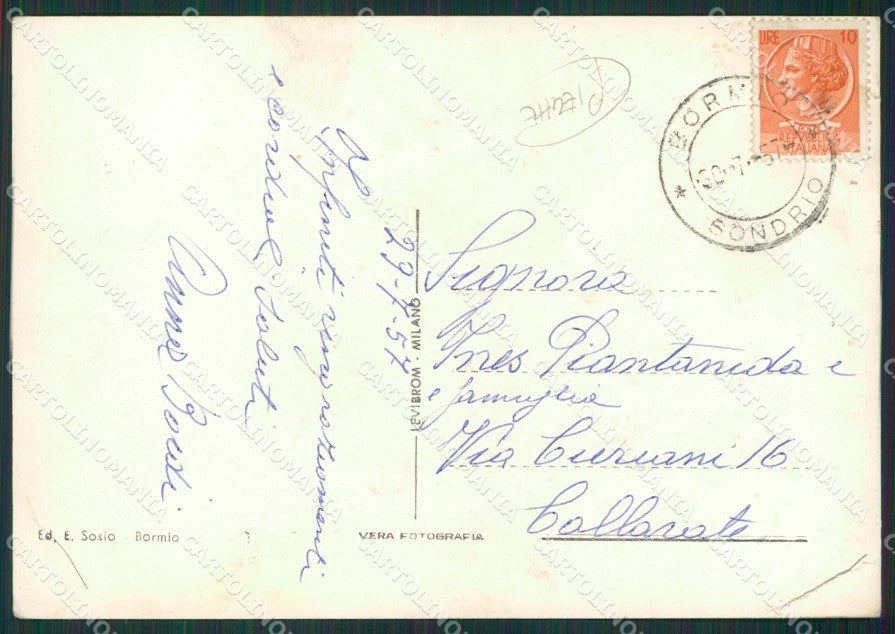 PIEGHE
LIRE 10
REPVBBLICA
ITALIANA
BORMIO
30-7-57
SONDRIO
29-7-57
Infiniti ringraziamenti
e cordiali saluti
Signora
Ines Piantanida e
e famiglia
Via Curiani 16
Gallarate
LEVIBROM - MILANO
Ed. E. Sosio - Bormio
VERA FOTOGRAFIA
CARTOLINOMANIA